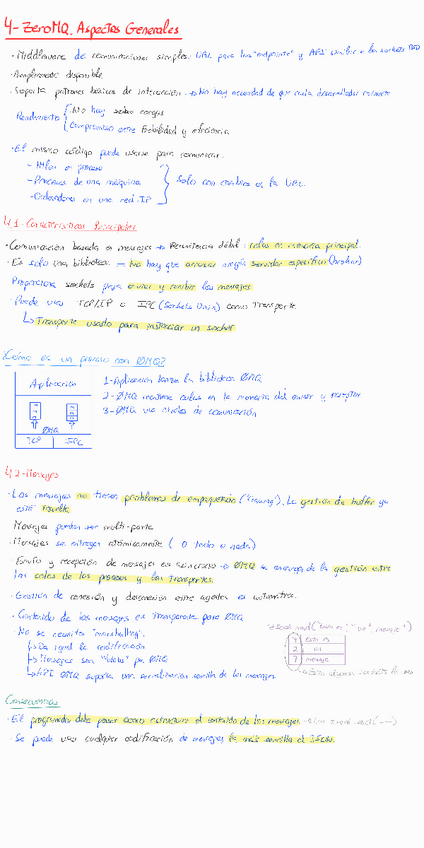 4- ZeroMQ. Aspectos Generales
· Middleware de comunicaciones simples: URL para los "endpoints" y API similar a los sockets BSD
· Ampliamente disponible
· Soporta patrones básicos de interacción → No hay necesidad de que cada desarrollador
Rendimiento { · No hay sobre cargas
· Compromiso entre fiabilidad y eficiencia
· El mismo código puede usarse para comunicar:
- Hilos en proceso
- Procesos de una máquina
- Ordenadores en una red IP
Solo con cambios en la URL.
4.1- Características Principales
· Comunicación basada en mensajes → Persistencia débil: colas en memoria principal.
· Es solo una biblioteca → No hay que arrancar ningún servidor específico (broker)
Proporciona sockets para enviar y recibir los mensajes
· Puede usar TCP/IP o IPC (Sockets Unix) como Transporte
↳ Transporte usado para instanciar un socket
¿Cómo es un proceso con ØMQ?
Aplicación
ØMQ
TCP IPC
1- Aplicación la biblioteca ØMQ
2- ØMQ mantiene colas en la memoria del emisor y receptor
3- ØMQ usa niveles de comunicación
4.2- Mensajes
· Los mensajes no tienen problemas de empaquetado ("framing"). La gestión de buffer ya
está resuelta
Mensajes pueden ser multi-parte
· Mensajes se entregan atómicamente ( O todo o nada)
· Envío y recepción de mensajes es asíncrono → ØMQ se encarga de la gestión entre
las colas de los procesos y los transportes.
· Gestión de conexión y desconexión entre agentes es automática.
· Contenido de los mensajes es transparente para ØMQ
No se necesita "marshalling".
↳ Da igual la codificación
↳ Mensajes son "blobs" para ØMQ
↳ API ØMQ soporta una serialización sencilla de los mensajes
Consecuencias
· El programador debe pensar como estructurar el contenido de los mensajes
· Se puede usar cualquier codificación de mensajes la más sencilla el